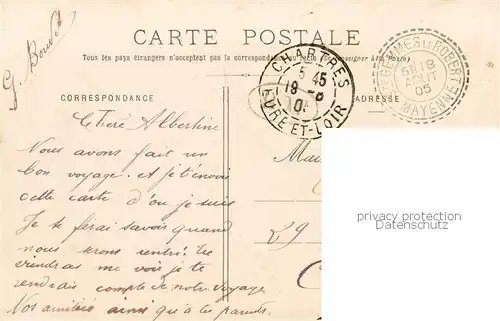 G. Bouvet
CARTE POSTALE
Tous les pays étrangers n'acceptent pas la correspondance au recto (Se renseigner à la Poste)
CHARTRES
5 45
19 -8
05
EURE-ET-LOIR
GEMMES LE ROBERT
18
AOUT
05
MAYENNE
CORRESPONDANCE
ADRESSE
Albertine
Nous avons fait un
bon voyage. et je t'envoie
cette carte d'ou je suis
Je te ferai savoir quand
nous serons rentré. Tu
viendras me voir je te
rendrais compte de notre voyage
Nos amitiés ainsi que à tes parents.
29
privacy protection